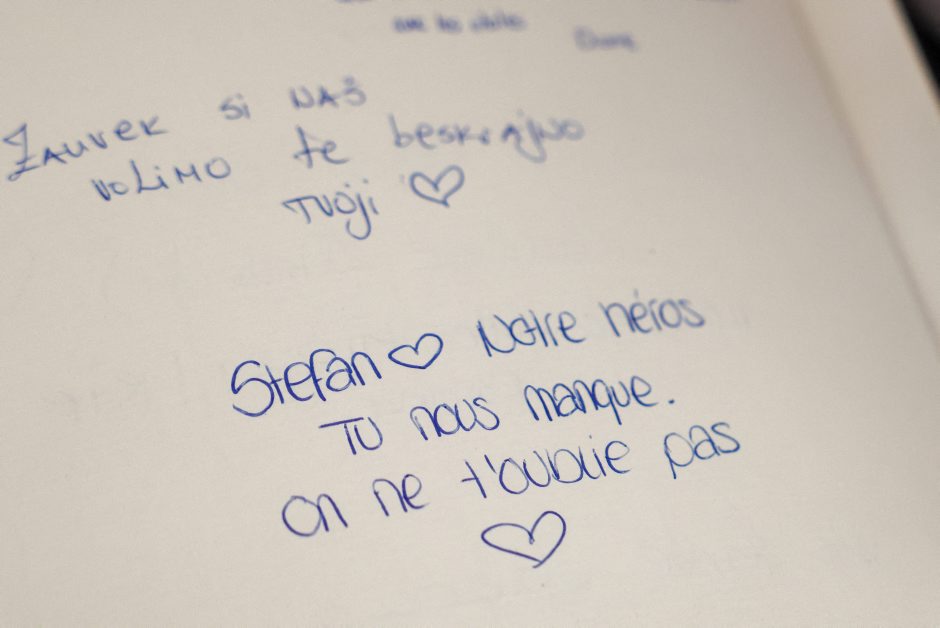 ZAUVEK Si NAŠ
VOLiMO te beskrajno
TVOji ♡
Stefan ♡ Notre héros
TU nous manque.
on ne t'oublie pas
♡